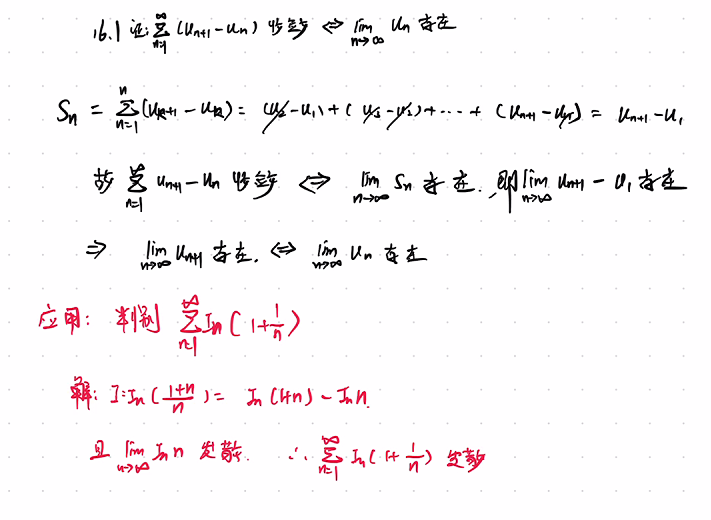 16.1 证: ∑_{n=1}^{∞} (u_{n+1} - u_n) 收敛 ⇔ lim_{n→∞} u_n 存在
S_n = ∑_{n=1}^{n} (u_{k+1} - u_k) = (u_2 - u_1) + (u_3 - u_2) + ⋯ + (u_{n+1} - u_n) = u_{n+1} - u_1
故 ∑_{n=1}^{∞} u_{n+1} - u_n 收敛 ⇔ lim_{n→∞} S_n 存在, 即 lim_{n→∞} u_{n+1} - u_1 存在
⇒ lim_{n→∞} u_{n+1} 存在. ⇔ lim_{n→∞} u_n 存在
应用: 判别 ∑_{n=1}^{∞} ln(1+\frac{1}{n})
解: I: ln(\frac{1+n}{n}) = ln(1+n) - ln n.
且 lim_{n→∞} ln n 发散. ∴ ∑_{n=1}^{∞} ln(1+\frac{1}{n}) 发散